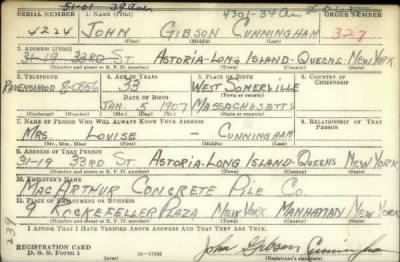 51-01 39 Ave. 4301-34 Ave
SERIAL NUMBER 1. NAME (Print) ORDER NUMBER
4224 JOHN GIBSON CUNNINGHAM 327
(First) (Middle) (Last)
2. ADDRESS (Print)
31-19 33RD ST. ASTORIA-LONG ISLAND-QUEENS NEW YORK
(Number and street or R. F. D. number) (Town) (County) (State)
3. TELEPHONE 4. AGE IN YEARS 5. PLACE OF BIRTH 6. COUNTRY OF CITIZENSHIP
RAVENSWOOD 8-0856 33 WEST SOMERVILLE
DATE OF BIRTH (Town or county)
JAN. 5 1907 MASSACHUSETTS
(Exchange) (Number) (Mo.) (Day) (Yr.) (State or country)
7. NAME OF PERSON WHO WILL ALWAYS KNOW YOUR ADDRESS 8. RELATIONSHIP OF THAT PERSON
MRS. LOUISE - CUNNINGHAM
(Mr., Mrs., Miss) (First) (Middle) (Last)
9. ADDRESS OF THAT PERSON
31-19 33RD ST. ASTORIA-LONG ISLAND-QUEENS NEW YORK
(Number and street or R. F. D. number) (Town) (County) (State)
10. EMPLOYER'S NAME
MACARTHUR CONCRETE PILE CO.
11. PLACE OF EMPLOYMENT OR BUSINESS
9 ROCKEFELLER PLAZA NEW YORK MANHATTAN NEW YORK
(Number and street or R. F. D. number) (Town) (County) (State)
I AFFIRM THAT I HAVE VERIFIED ABOVE ANSWERS AND THAT THEY ARE TRUE.
REGISTRATION CARD
D. S. S. Form 1 16-17105 John Gibson Cunningham
239